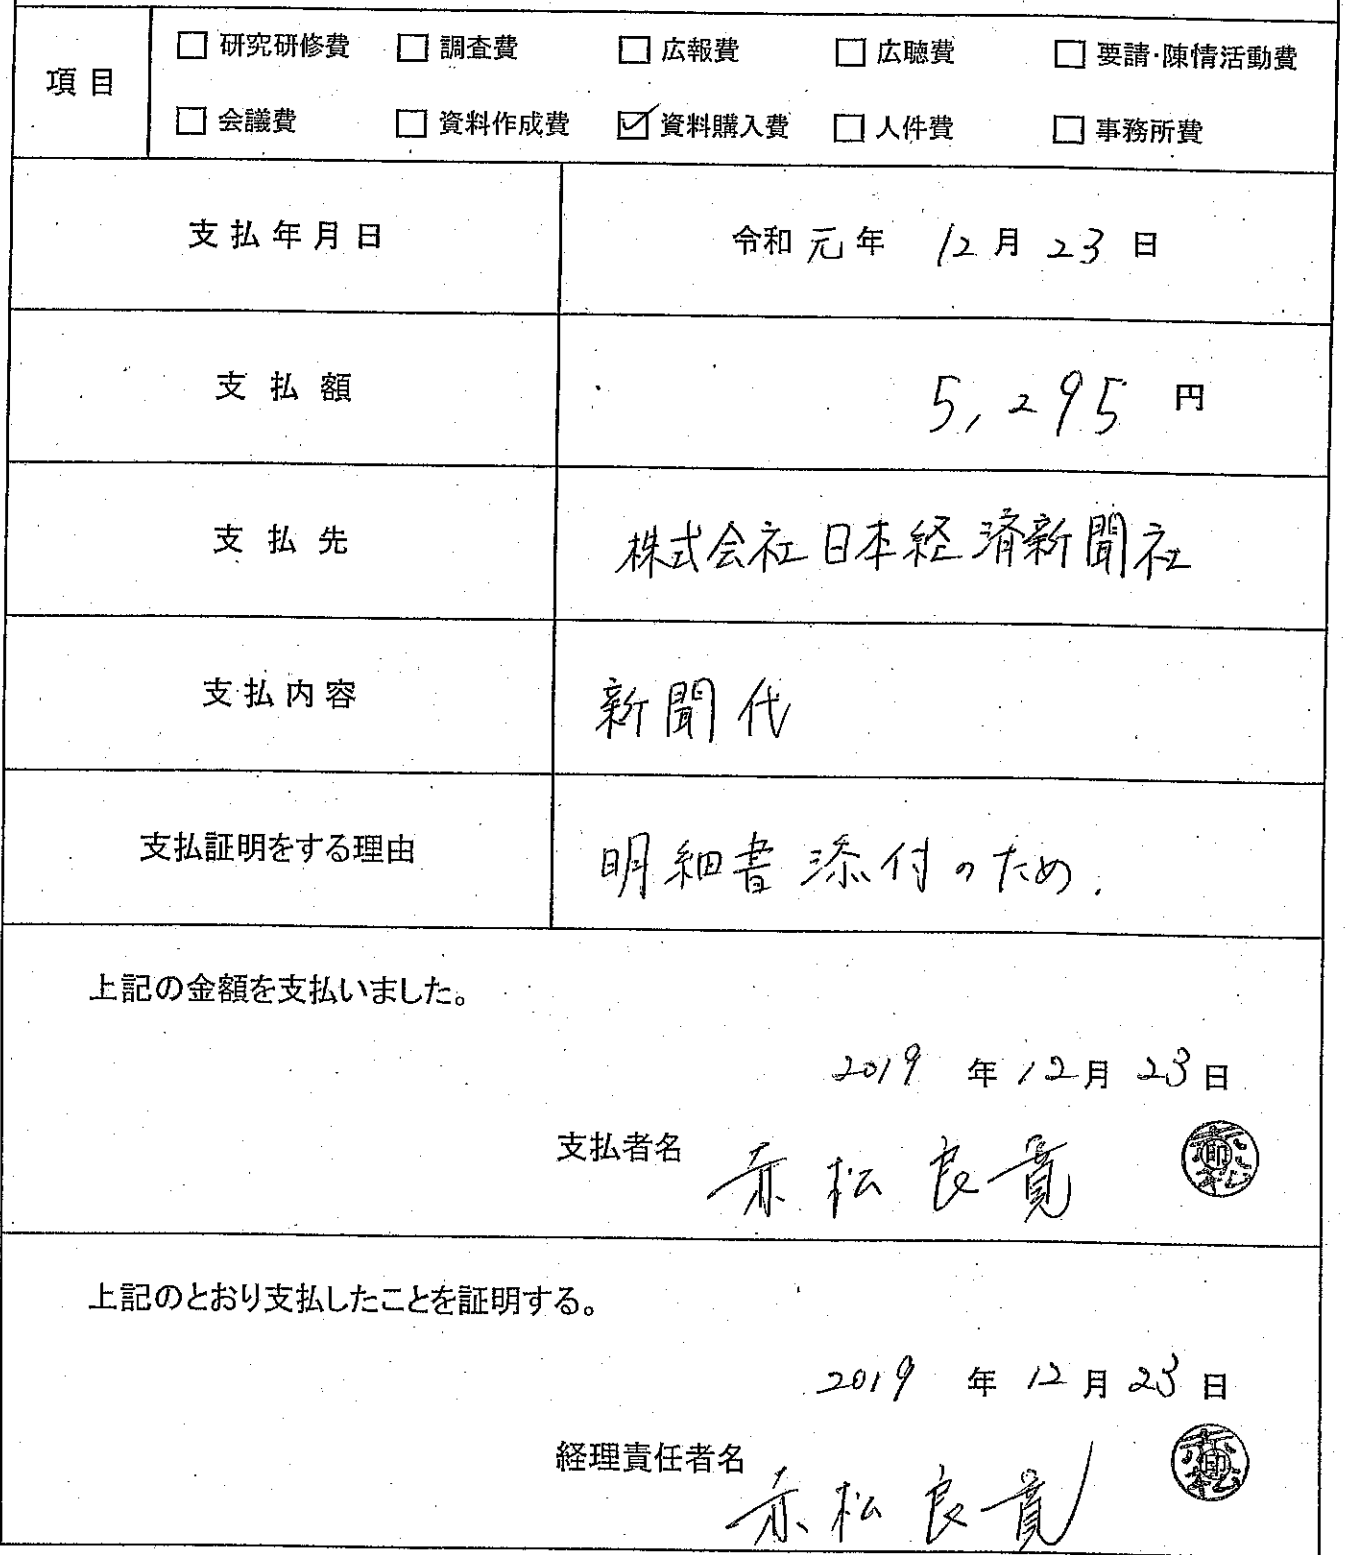 項目
□ 研究研修費 □ 調査費 □ 広報費 □ 広聴費 □ 要請・陳情活動費
□ 会議費 □ 資料作成費 ☑ 資料購入費 □ 人件費 □ 事務所費
支払年月日 令和元年 12月23日
支払額 5,295 円
支払先 株式会社日本経済新聞社
支払内容 新聞代
支払証明をする理由 明細書添付のため.
上記の金額を支払いました。
2019 年 12月 23日
支払者名 赤松良寛 赤松 印
上記のとおり支払したことを証明する。
2019 年 12月 23日
経理責任者名 赤松良寛 赤松 印